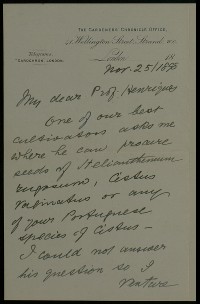 THE GARDENERS' CHRONICLE OFFICE,
41, Wellington Street, Strand, W.C.
Telegrams,
"GARDCHRON, LONDON."
London 18
Nov. 25/1895
My dear Prof. Henriques
One of our best
cultivators asks me
where he can procure
seeds of Helianthemum
rugosum, Cistus
vaginatus or any
of your Portuguese
species of Cistus –
I could not answer
his question so I
venture